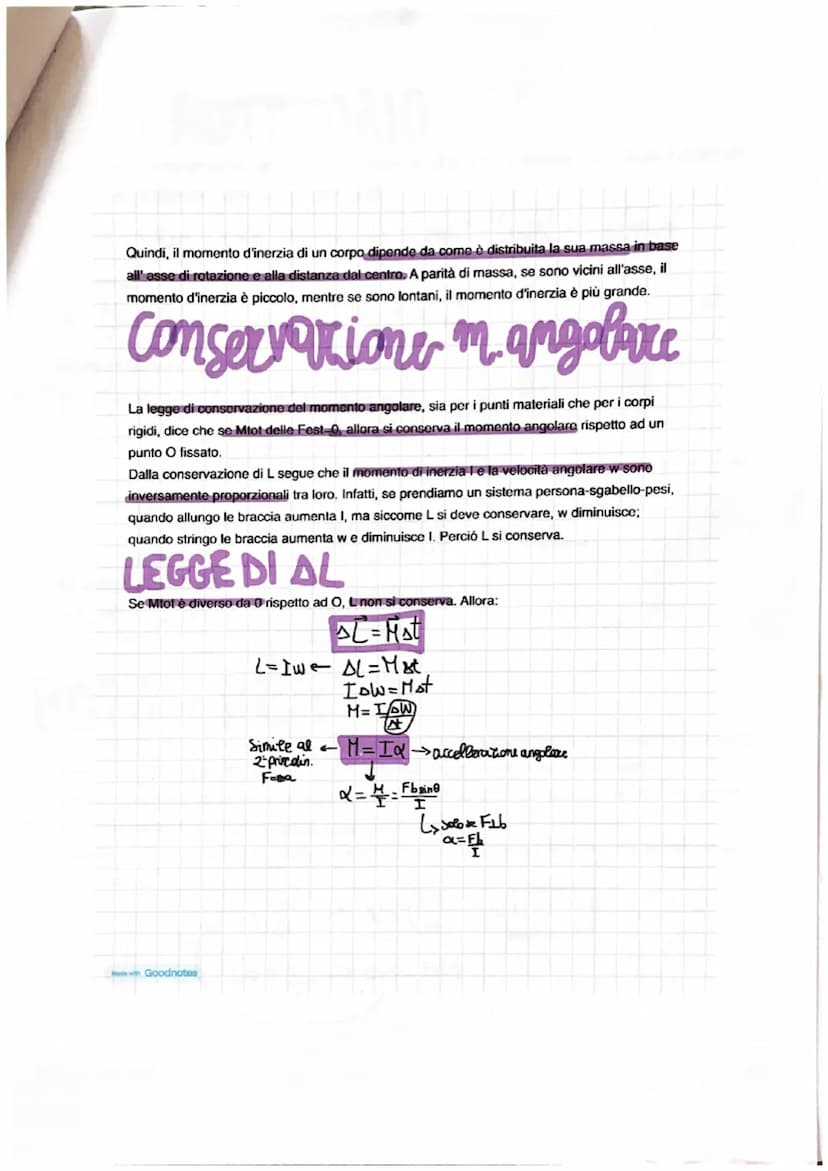 Quindi, il momento d'inerzia di un corpo dipende da come è distribuita la sua massa in base
all' asse di rotazione e alla distanza dal centro. A parità di massa, se sono vicini all'asse, il
momento d'inerzia è piccolo, mentre se sono lontani, il momento d'inerzia è più grande.
Conservazione m. angolare
La legge di conservazione del momento angolare, sia per i punti materiali che per i corpi
rigidi, dice che se Mtot delle Fest=0, allora si conserva il momento angolare rispetto ad un
punto O fissato.
Dalla conservazione di L segue che il momento di inerzia I e la velocità angolare w sono
inversamente proporzionali tra loro. Infatti, se prendiamo un sistema persona-sgabello-pesi,
quando allungo le braccia aumenta I, ma siccome L si deve conservare, w diminuisce;
quando stringo le braccia aumenta w e diminuisce I. Perció L si conserva.
LEGGE DI ΔL
Se Mtot è diverso da 0 rispetto ad O, L non si conserva. Allora:
ΔL⃗ = M⃗Δt
L=Iw ← ΔL=MΔt
IΔW=MΔt
M=I ΔW/Δt
Simile al ← M=Iα → accellerazione angolare
2° princ.din.
F=ma
↓
α = M/I = Fb sinθ/I
↳ solo se F⊥b
α=Fb/I
Made with Goodnotes